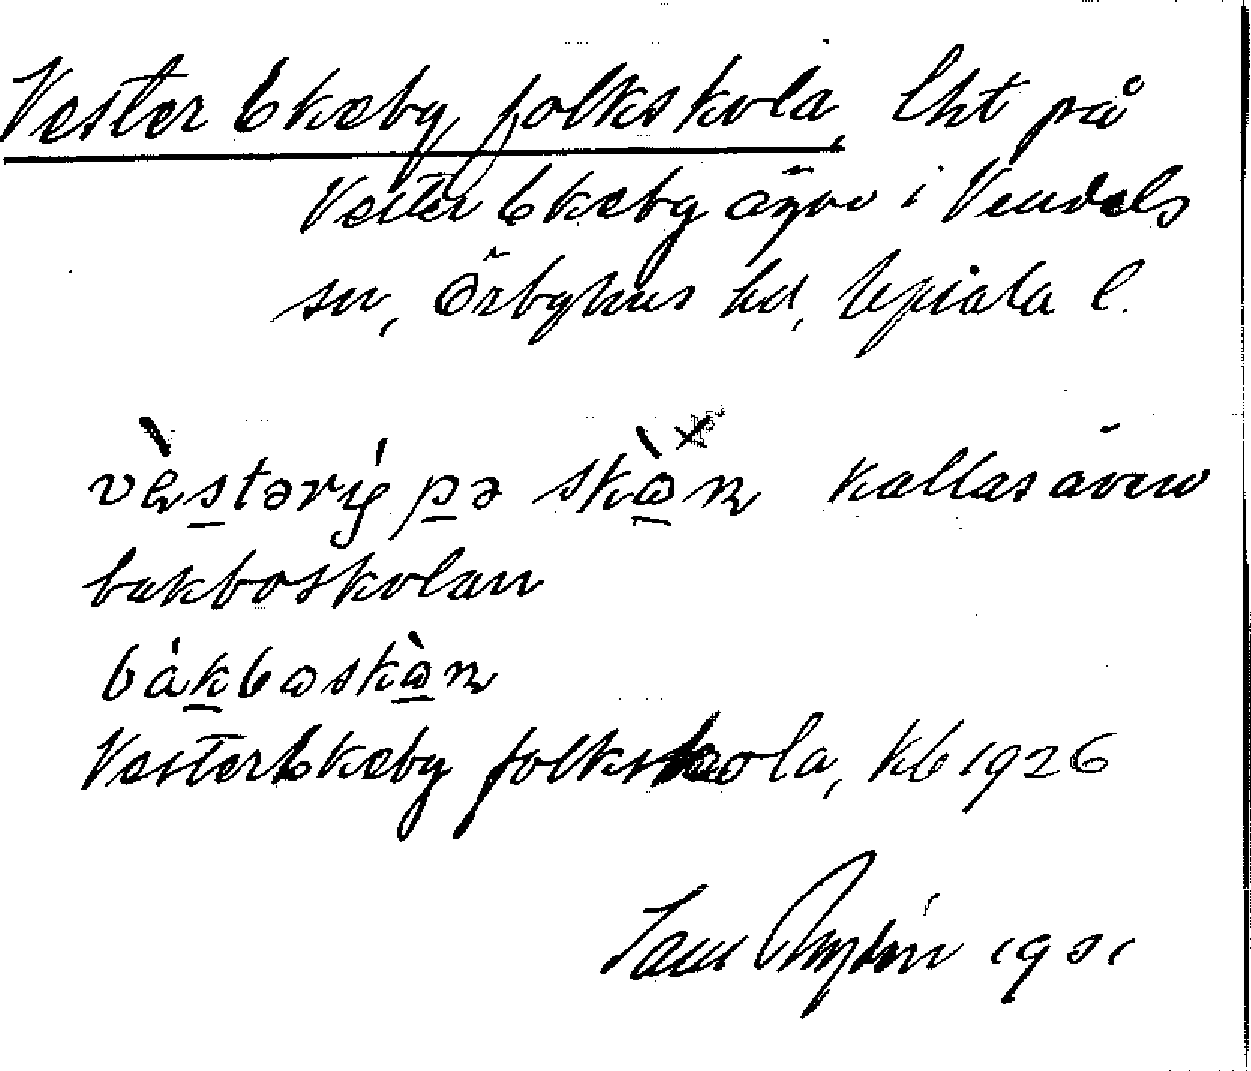 Vester Ekeby folkskola, lht på
Vester Ekeby ägor i Vendels
sn, Örbyhus hd, Upsala l.
vèstəriʝ pə skɷ̀n kallas även
bakboskolan
bákbɷskɷ̀n
Vester Ekeby folkskola, Kb 1926
1931